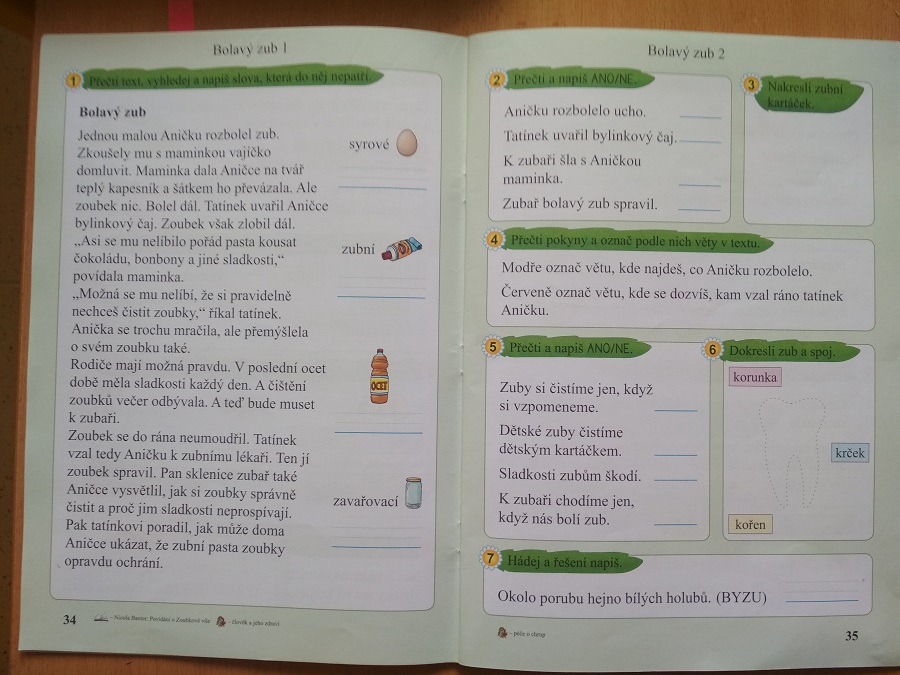 Bolavý zub 1
1 Přečti text, vyhledej a napiš slova, která do něj nepatří.
Bolavý zub
Jednou malou Aničku rozbolel zub.
Zkoušely mu s maminkou vajíčko
domluvit. Maminka dala Aničce na tvář
teplý kapesník a šátkem ho převázala. Ale
zoubek nic. Bolel dál. Tatínek uvařil Aničce
bylinkový čaj. Zoubek však zlobil dál.
„Asi se mu nelíbilo pořád pasta kousat
čokoládu, bonbony a jiné sladkosti,“
povídala maminka.
„Možná se mu nelíbí, že si pravidelně
nechceš čistit zoubky,“ říkal tatínek.
Anička se trochu mračila, ale přemýšlela
o svém zoubku také.
Rodiče mají možná pravdu. V poslední ocet
době měla sladkosti každý den. A čištění
zoubků večer odbývala. A teď bude muset
k zubaři.
Zoubek se do rána neumoudřil. Tatínek
vzal tedy Aničku k zubnímu lékaři. Ten jí
zoubek spravil. Pan sklenice zubař také
Aničce vysvětlil, jak si zoubky správně
čistit a proč jim sladkosti neprospívají.
Pak tatínkovi poradil, jak může doma
Aničce ukázat, že zubní pasta zoubky
opravdu ochrání.
syrové
zubní
OCET
zavařovací
34
– Nicola Baxter: Povídání o Zoubkové víle
– člověk a jeho zdraví
Bolavý zub 2
2 Přečti a napiš ANO/NE.
Aničku rozbolelo ucho.
Tatínek uvařil bylinkový čaj.
K zubaři šla s Aničkou
maminka.
Zubař bolavý zub spravil.
3 Nakresli zubní
kartáček.
4 Přečti pokyny a označ podle nich věty v textu.
Modře označ větu, kde najdeš, co Aničku rozbolelo.
Červeně označ větu, kde se dozvíš, kam vzal ráno tatínek
Aničku.
5 Přečti a napiš ANO/NE.
Zuby si čistíme jen, když
si vzpomeneme.
Dětské zuby čistíme
dětským kartáčkem.
Sladkosti zubům škodí.
K zubaři chodíme jen,
když nás bolí zub.
6 Dokresli zub a spoj.
korunka
krček
kořen
7 Hádej a řešení napiš.
Okolo porubu hejno bílých holubů. (BYZU)
– péče o chrup
35